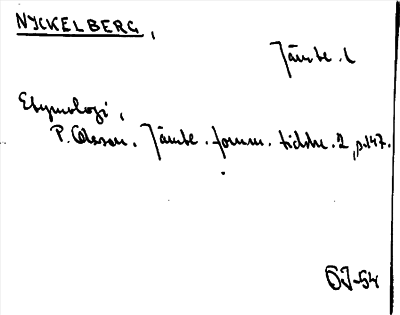 NYCKELBERG,
Jämte. l
Etymologi,
P. Olsson. Jämtl. fornm. tidskr. 2, p. 147.
ÖJ-54